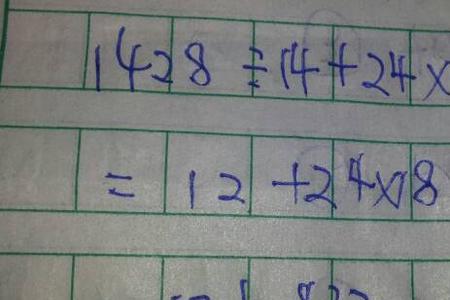 1428÷14+24×
=12+24×18